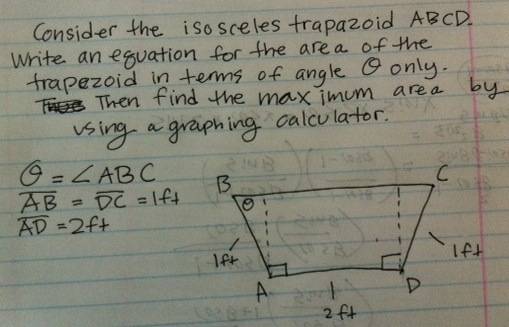 Consider the isosceles trapazoid ABCD.
Write an equation for the area of the
trapezoid in terms of angle θ only.
Then find the maximum area by
using a graphing calculator.
θ = ∠ABC
AB = DC = 1ft
AD = 2ft
B
C
θ
1ft
1ft
A
D
2ft